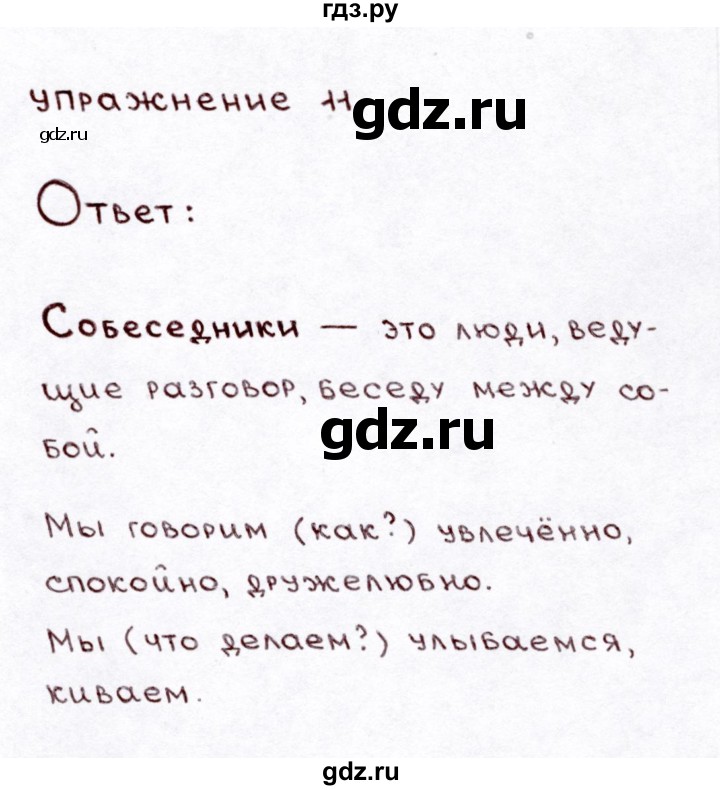 гдз.ру
упражнение 11
gdz.ru
gdz.ru
Ответ:
Собеседники — это люди, веду-
щие разговор, беседу между со-
бой.
gdz.ru
Мы говорим (как?) увлечённо,
спокойно, дружелюбно.
Мы (что делаем?) улыбаемся,
киваем.
gdz.ru